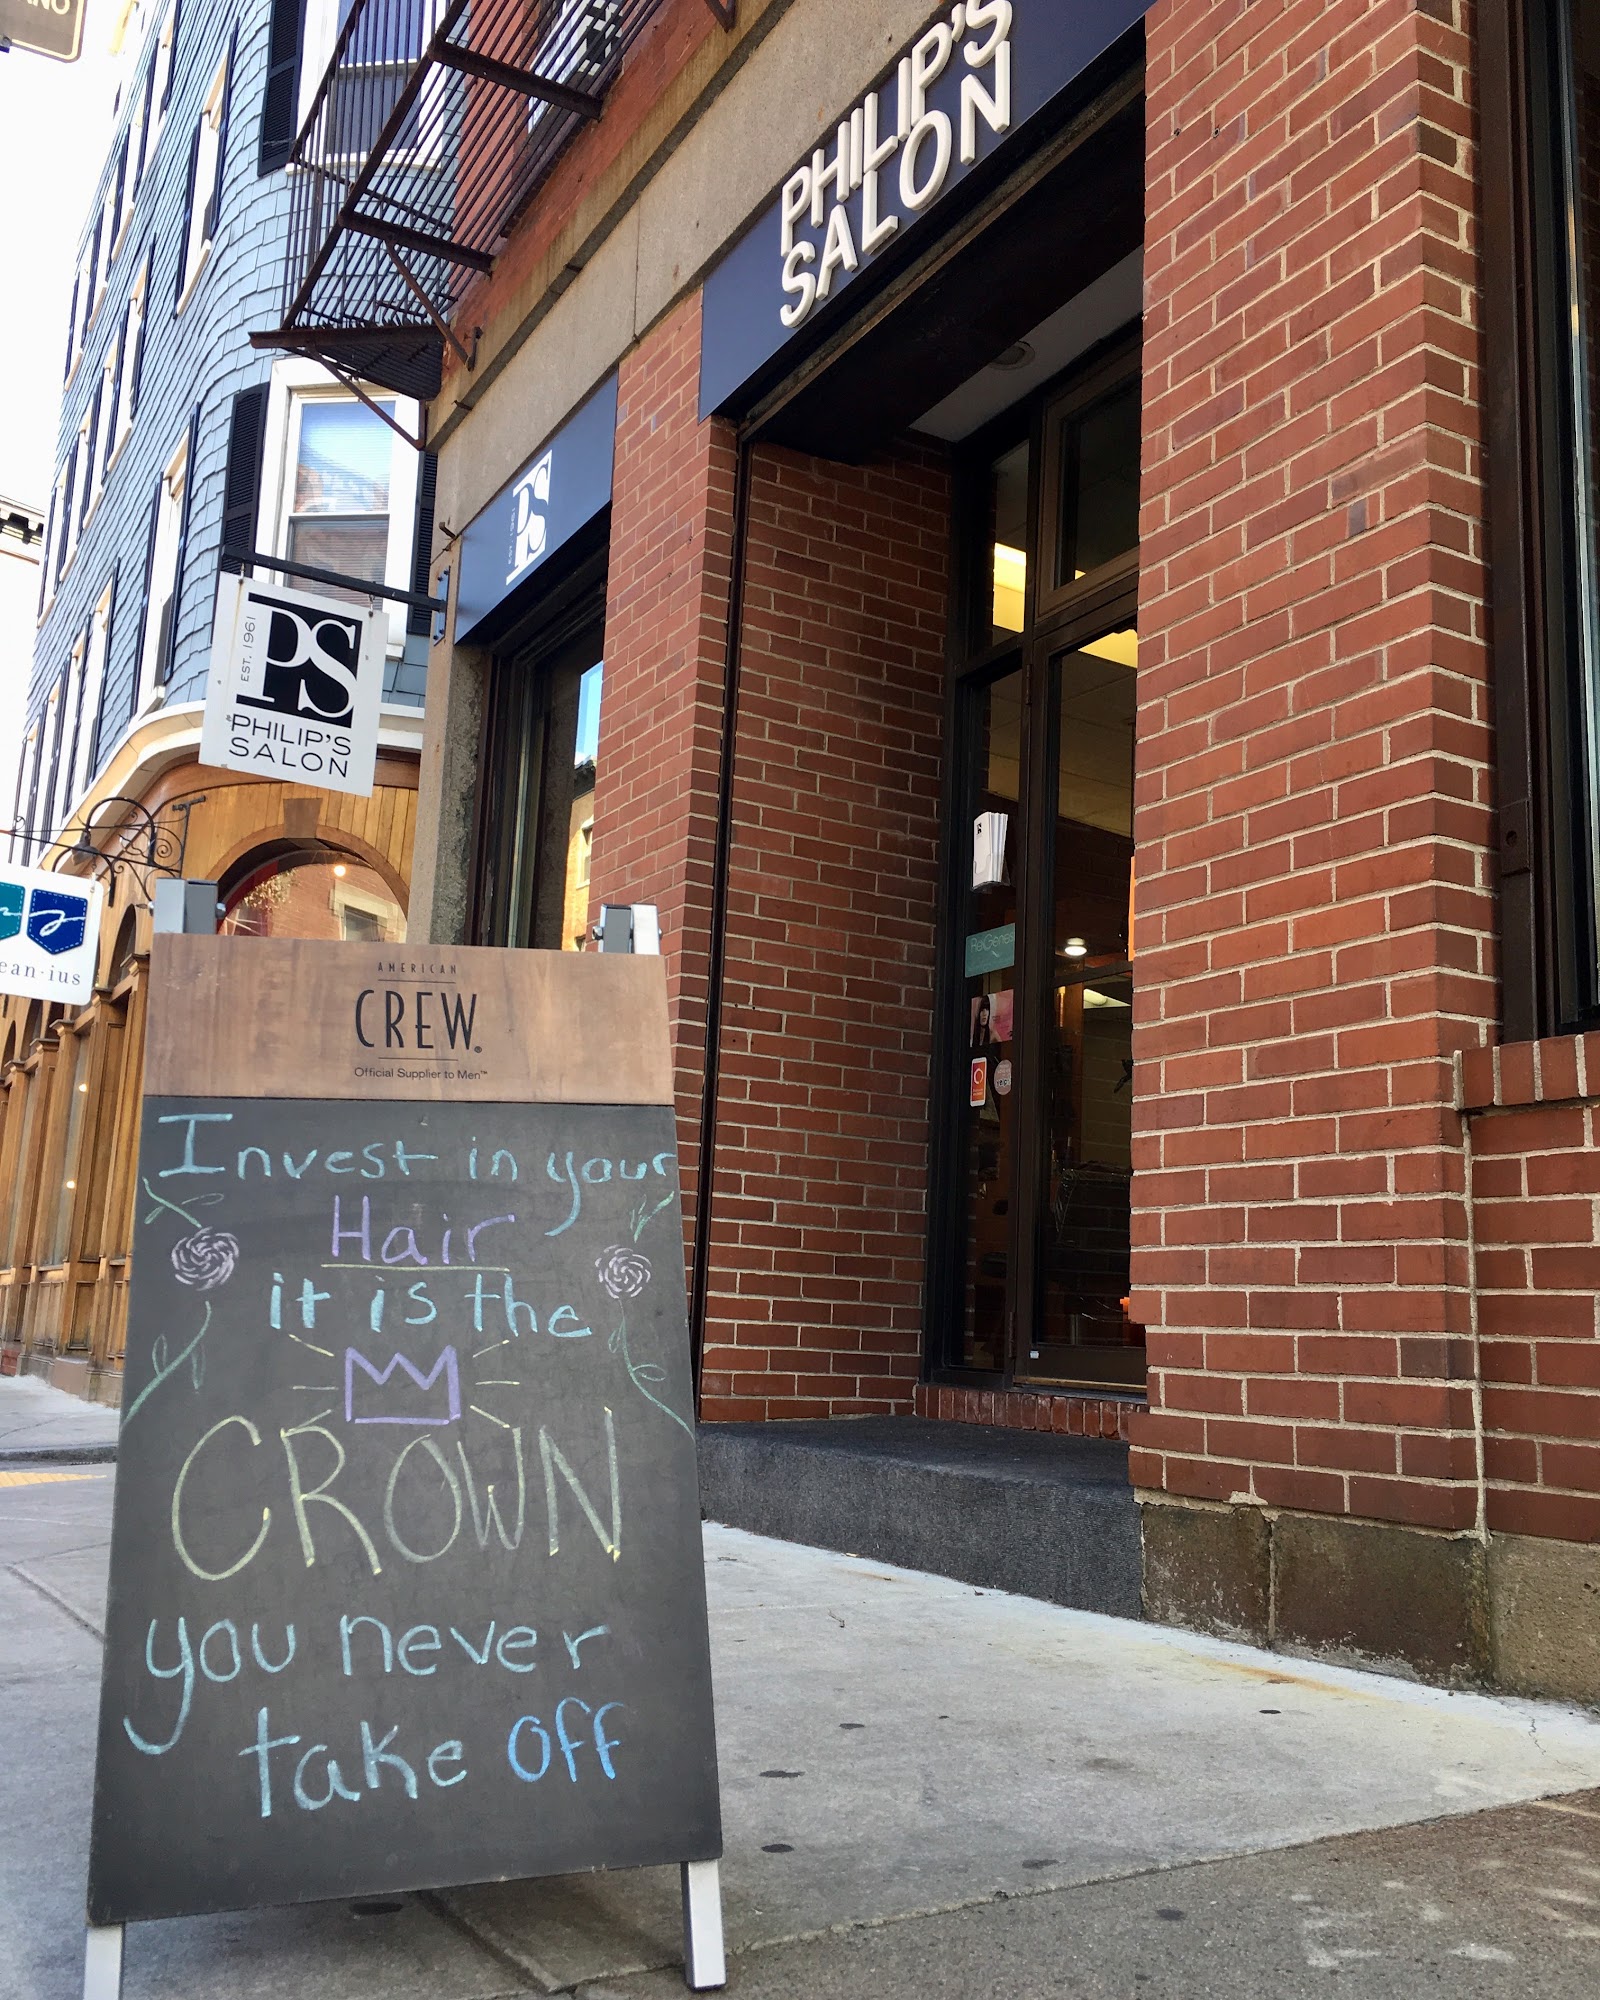 PHILIP'S
SALON
EST. 1961
PS
EST. 1961
PS
PHILIP'S
SALON
ean·ius
AMERICAN
CREW®
Official Supplier to Men™
Invest in your
Hair
it is the
CROWN
you never
take off